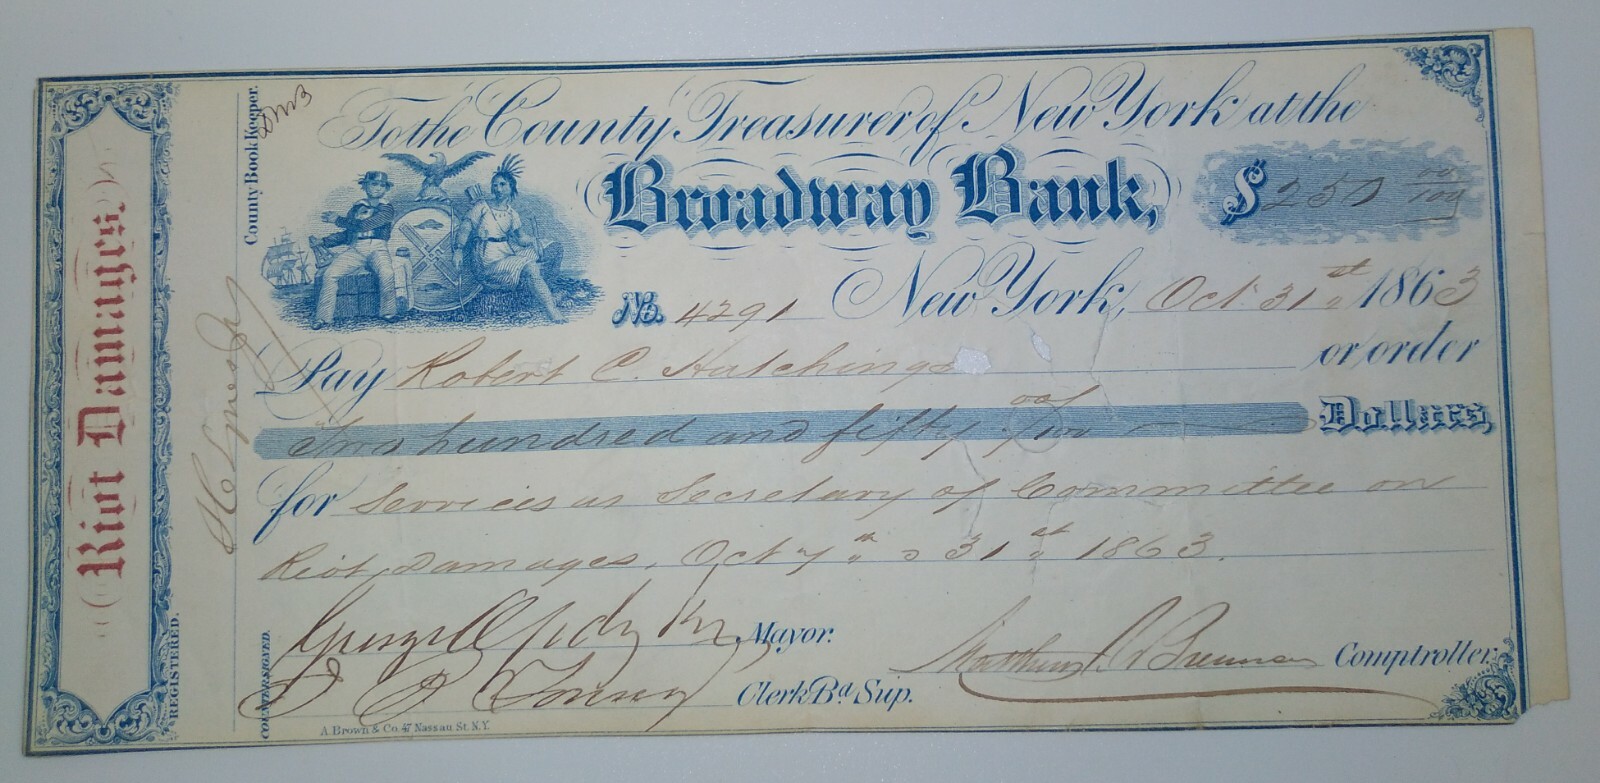 Riot Damages.
REGISTERED.
County Book Keeper.
COUNTERSIGNED.
To the County Treasurer of New York at the
Broadway Bank,
$ 250 00/100
No. 4291 New York, Oct. 31st 1863
Pay Robert C. Hutchings or order
Two hundred and fifty 00/100 Dollars,
for Services as Secretary of Committee on
Riot Damages, Oct 7th 31st 1863.
George Opdyke Mayor.
Matthew T. Brennan Comptroller.
Clerk Bd Sup.
A. Brown & Co. 47 Nassau St. N.Y.